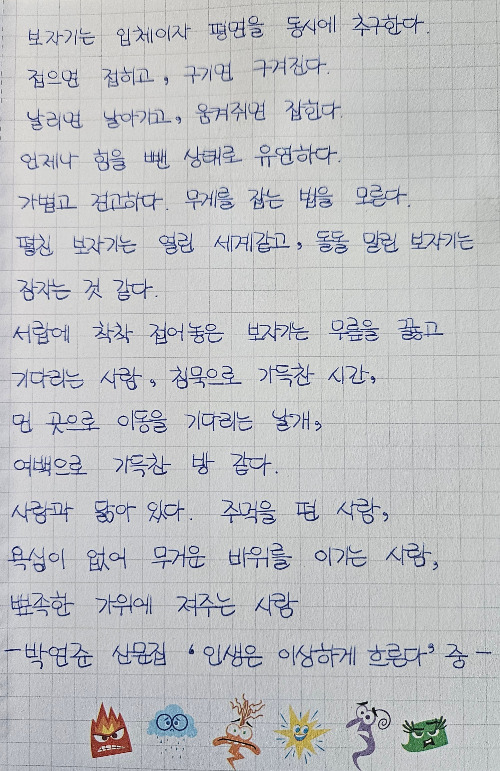 보자기는 입체이자 평면을 동시에 추구한다.
접으면 접히고, 구기면 구겨진다.
날리면 날아가고, 움켜쥐면 잡힌다.
언제나 힘을 뺀 상태로 유연하다.
가볍고 견고하다. 무게를 잡는 법을 모른다.
펼친 보자기는 열린 세계같고, 돌돌 말린 보자기는
잠자는 것 같다.
서랍에 착착 접어놓은 보자기는 무릎을 꿇고
기다리는 사람, 침묵으로 가득찬 시간,
먼 곳으로 이동을 기다리는 날개,
여백으로 가득찬 방 같다.
사람과 닮아 있다. 주먹을 편 사람,
욕심이 없어 무거운 바위를 이기는 사람,
뾰족한 가위에 져주는 사람
-박연준 산문집 '인생은 이상하게 흐른다' 중-